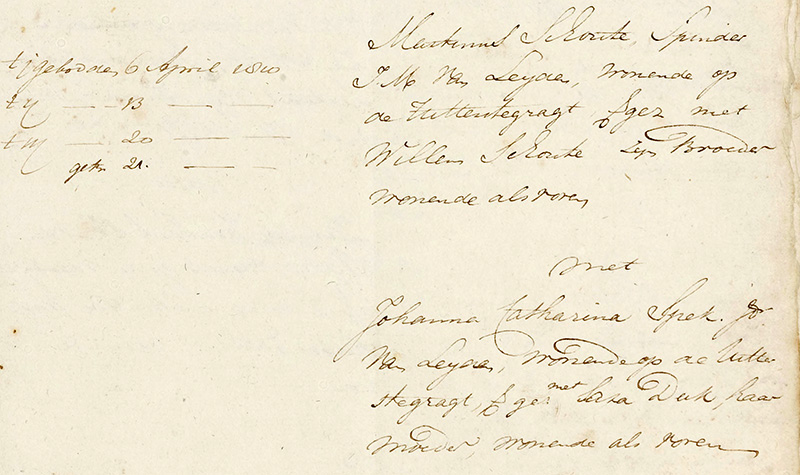 t j geboden 6 April 1810
t ij — — 13 — —
t iij — — 20 — —
getr. 21. — —
Martinus Schoute, Spinder
J.M. van Leyden, wonende op
de Uitterstegragt, verges met
Willem Schoute zijn Broeder
wonende als voren
met
Johanna Catharina Spek. J.D.
van Leyden, wonende op de Uitter
stegragt, verges met Sara Duk, haar
moeder, wonende als voren